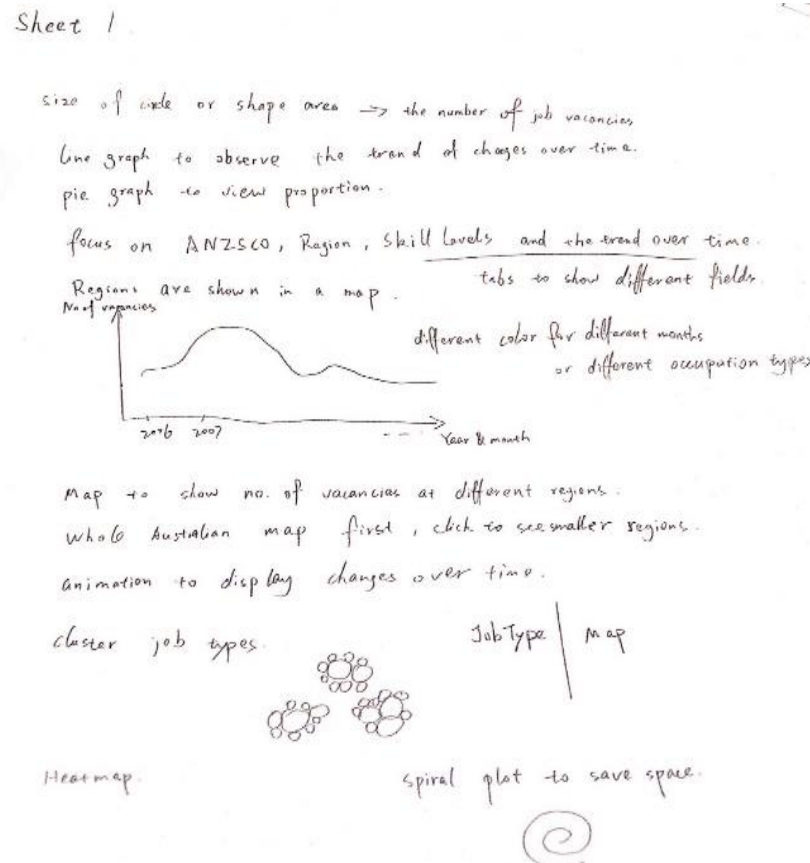 Sheet 1
size of circle or shape area → the number of job vacancies
line graph to observe the trend of changes over time.
pie graph to view proportion.
focus on ANZSCO, Region, Skill Levels and the trend over time.
tabs to show different fields.
Regions are shown in a map.
No of vacancies
different color for different months
or different occupation types
2006 2007 - - - Year & month
Map to show no. of vacancies at different regions.
Whole Australian map first, click to see smaller regions.
animation to display changes over time.
cluster job types.
Job Type | Map
Heatmap.
spiral plot to save space.